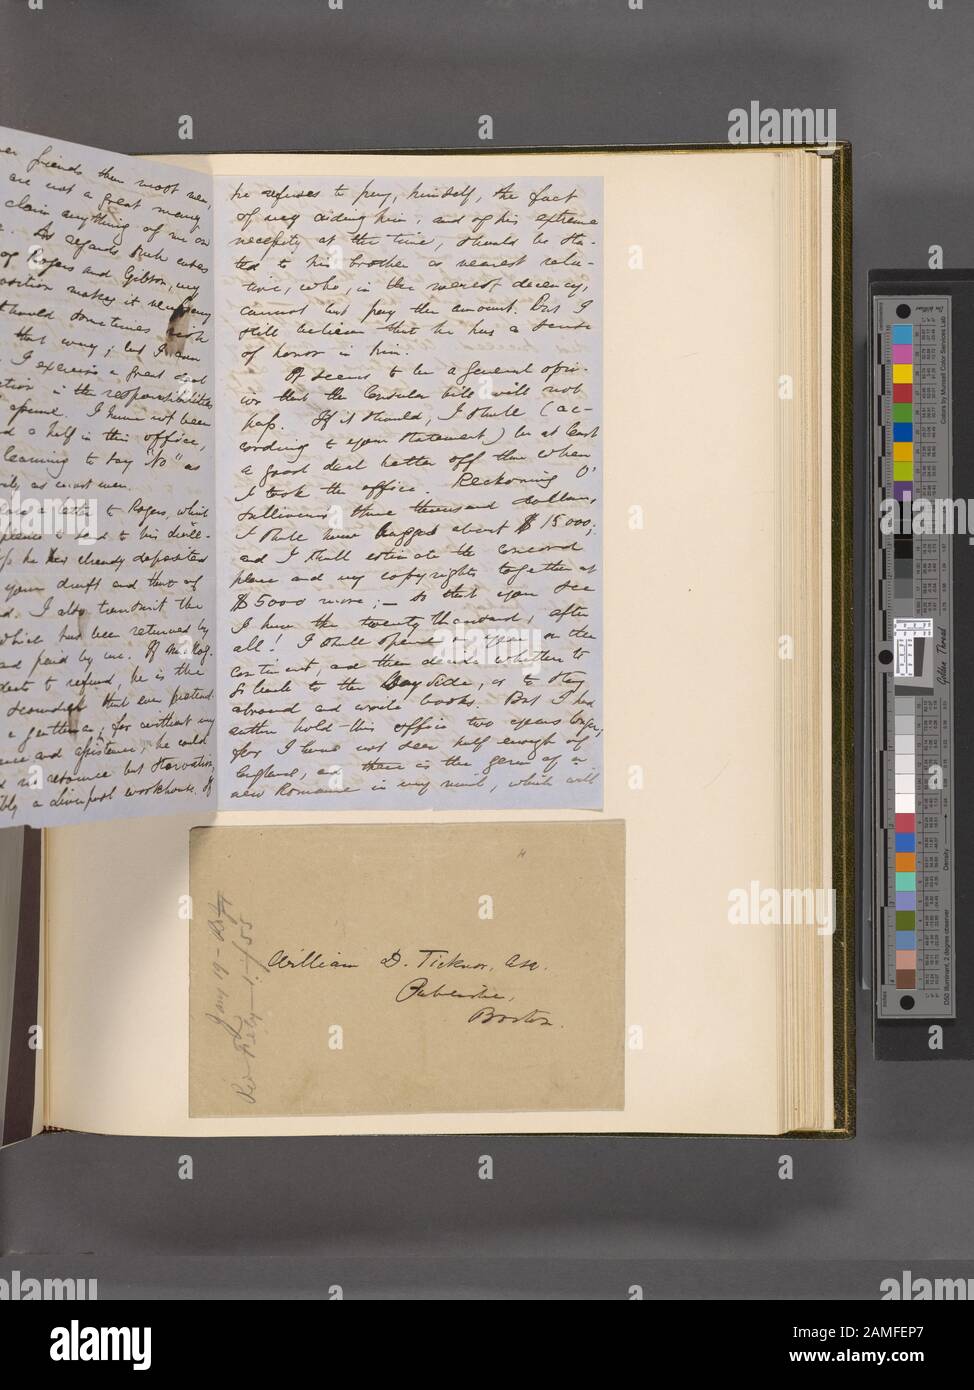 friends than most men,
are not a great many
claim anything of me on
As regards such cases
of Rogers and Gibson, my
position makes it necessary
should sometimes risk
that way; but I am
I exercise a great deal
in the responsibilities
I have not been
a half in this office,
learning to say "No" as
as most men.
a letter to Rogers, which
please to send to his
he has already deposited
your draft and that of
I also transmit the
which has been returned by
and paid by me. If
to refund, he is the
scoundrel that ever pretend
a gentleman; for without my
and assistance, he could
no resource but starvation,
a Liverpool workhouse. If
he refuses to pay, himself, the fact
of my aiding him, and of his extreme
necessity at the time, should be sta-
ted to his brother or nearest rela-
tive, who, in the merest decency,
cannot but pay the amount. But I
still believe that he has a sense
of honor in him.
It seems to be a general opin-
ion that the Consular bill will not
pass. If it should, I shall (ac-
cording to your statement) be at least
a good deal better off than when
I took the office. Reckoning O'
Sullivan's three thousand dollars,
I shall have bagged about $15000;
and I shall estimate the Concord
place and my copyrights together at
$5000 more;—so that you see
I have the twenty thousand, after
all! I shall spend a year on the
continent, and then decide whether to
go back to the Wayside, or to stay
abroad and write books. But I had
rather hold this office two years longer,
for I have not seen half enough of
England, and there is the germ of a
new Romance in my mind, which will
William D. Ticknor, Esq.
Publisher,
Boston.
Jany 19
alamy
Image ID: 2AMFEP7
www.alamy.com